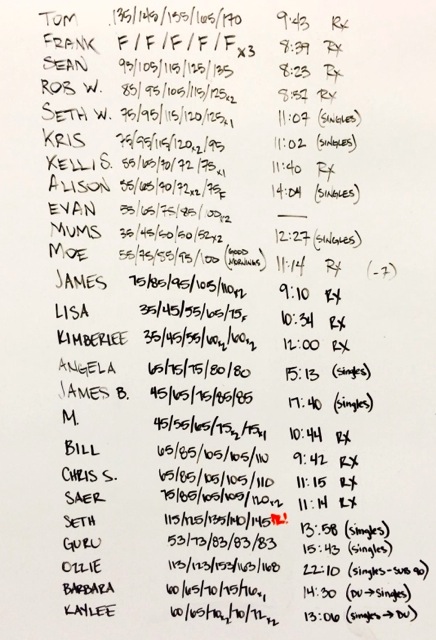 TOM 135/145/155/165/170 9:43 RX
FRANK F/F/F/F/F x3 8:39 RX
SEAN 95/105/115/125/135 8:23 RX
ROB W. 85/95/105/115/125x2 8:52 RX
SETH W. 75/95/115/120/125x1 11:07 (SINGLES)
KRIS 75/95/115/120x2/95 11:02 (SINGLES)
KELLI S. 55/65/70/72/75x1 11:40 RX
ALISON 55/65/70/72x2/75F 14:04 (SINGLES)
EVAN 35/65/75/85/100x2 —
MUMS 35/45/50/50/52x2 12:27 (SINGLES)
MOE 55/75/85/95/100 (GOOD MORNINGS) 11:14 RX (-7)
JAMES 75/85/95/105/110x2 9:10 RX
LISA 35/45/55/65/75F 10:34 RX
KIMBERLEE 35/45/55/60x2/60x2 12:00 RX
ANGELA 65/75/75/80/80 15:13 (singles)
JAMES B. 45/65/75/85/85 17:40 (singles)
M. 45/55/65/75x2/75x1 10:44 RX
BILL 65/85/105/105/110 9:42 RX
CHRIS S. 65/85/105/105/110 11:15 RX
SAER 75/85/105/105/120x2 11:14 RX
SETH 115/125/135/140/145 PR! 13:58 (singles)
GURU 53/73/83/83/83 15:43 (singles)
OLLIE 113/123/153/163/168 22:10 (singles-SUB 90)
BARBARA 60/65/70/75/76x1 14:30 (DU→Singles)
KAYLEE 60/65/70x2/70/72x2 13:06 (singles→DU)